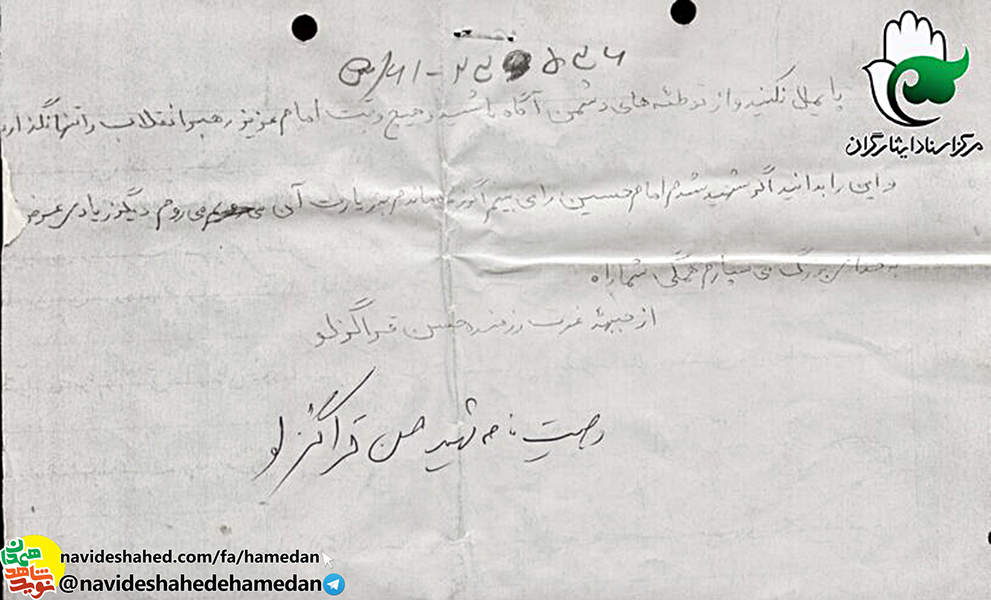 پایمال نکنید و از توطئه های دشمن آگاه باشید و هیچ وقت امام عزیز رهبر انقلاب را تنها نگذارید
مرکز اسناد ایثارگران
و این را بدانید اگر شهید شدم امام حسین را می بینم اگر زنده ماندم به زیارت آن می روم دیگر زیادی عرض
به خدای بزرگ می سپارم همگی شما را
از جبهۀ غرب رزمنده حسن قراگزلو
وصیت نامه شهید حسن قراگزلو
نوید شاهد همدان
navideshahed.com/fa/hamedan
@navideshahedehamedan